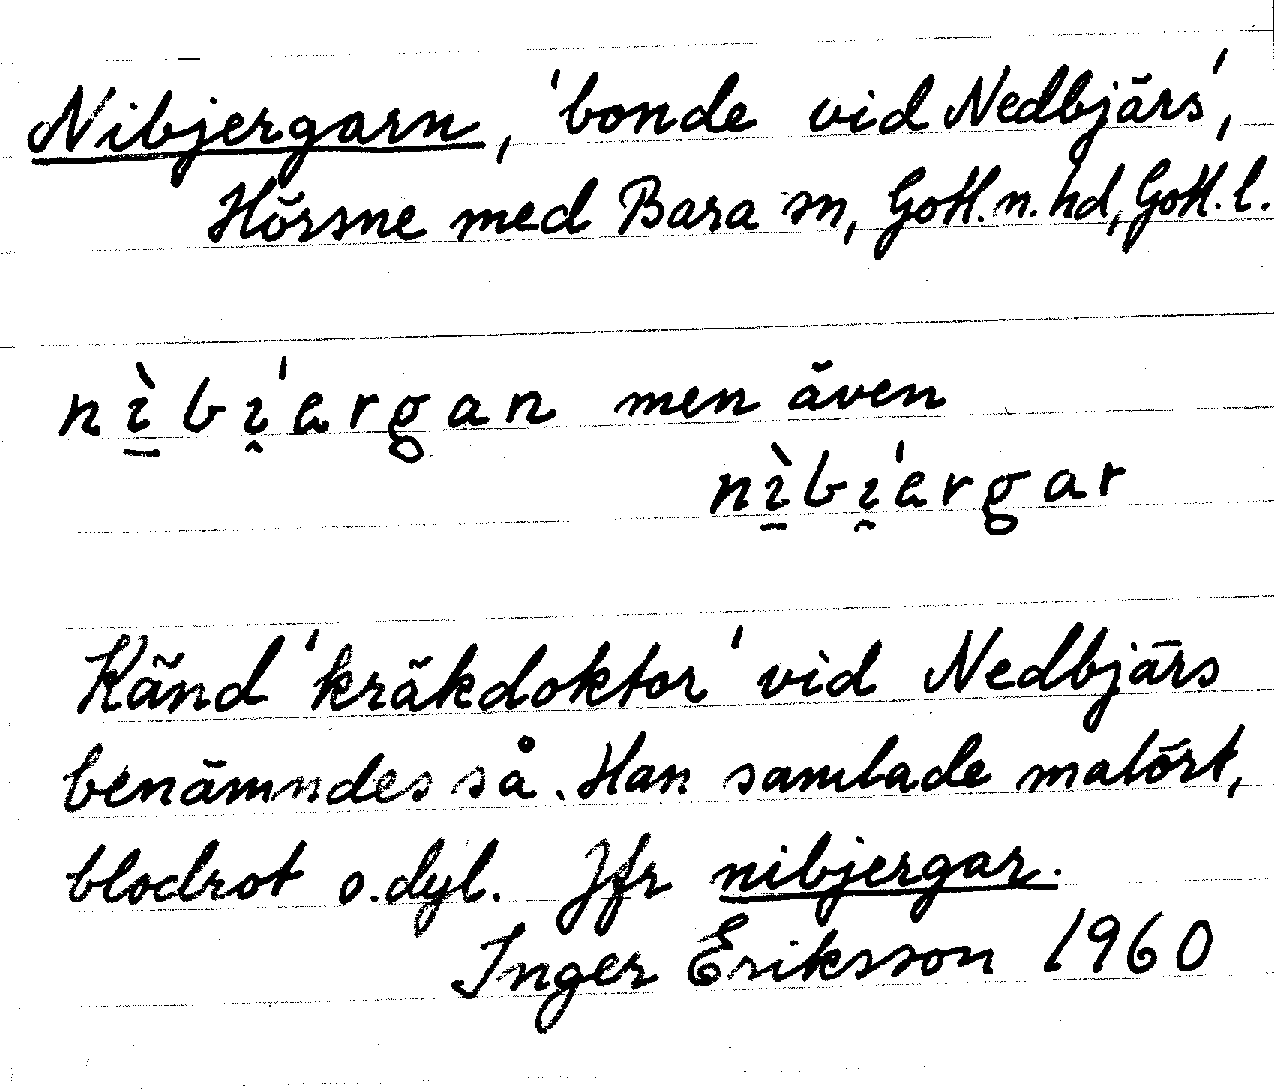 Nibjergarn, 'bonde vid Nedbjärs',
Hörsne med Bara sn, Gotl. n. hd, Gotl. l.
nɪ̱̀bɪ̯'ærgan men även
nɪ̱̀bɪ̯'ærgar
Känd 'kräkdoktor' vid Nedbjärs
benämndes så. Han samlade malört,
blodrot o.dyl. Jfr nibjergar.
Inger Eriksson 1960